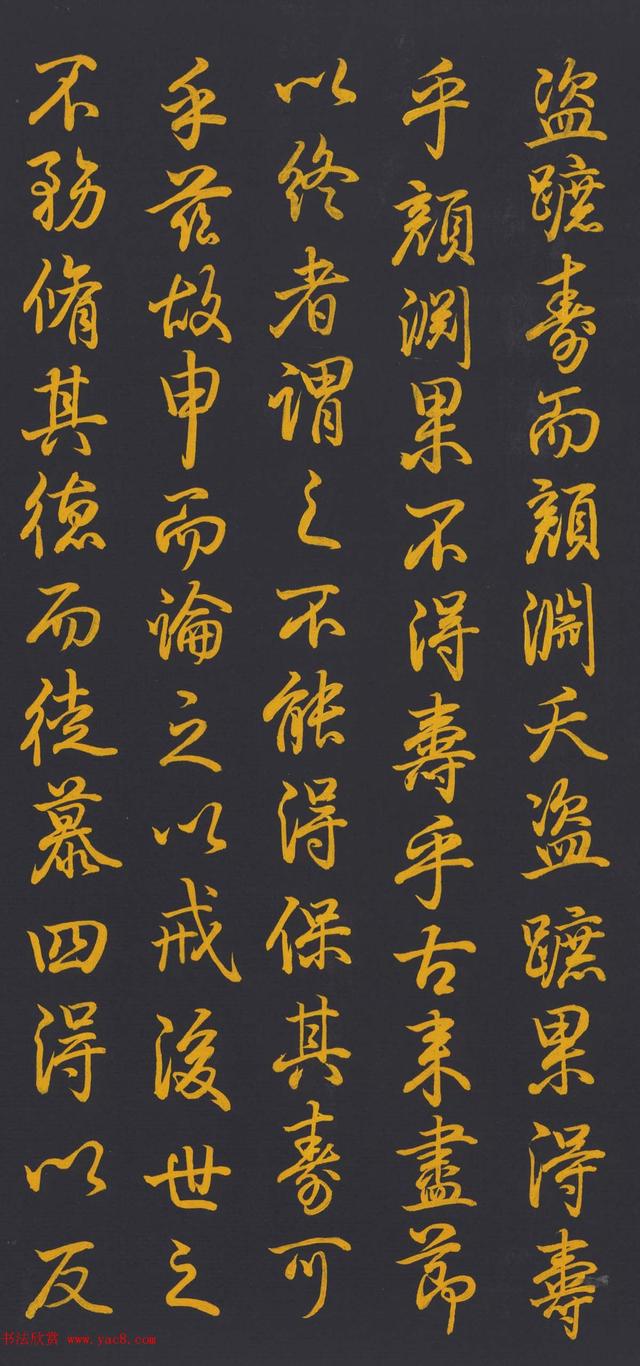 盗蹠壽而顏淵夭盗蹠果得壽
乎顏淵果不得壽乎古来盡節
以終者謂之不能得保其壽可
乎茲故申而論之以戒後世之
不務脩其德而徒慕四得以反
书法欣赏 www.yac8.com